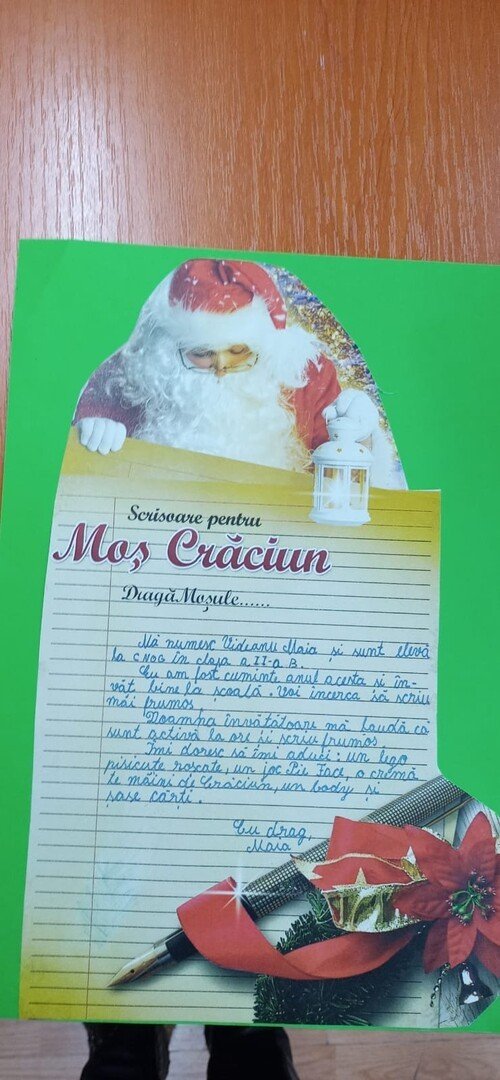 Scrisoare pentru
Moș Crăciun
Dragă Moșule......
Mă numesc Videanu Maia și sunt elevă
la CNOG în clasa a II-a B.
Eu am fost cuminte anul acesta și în-
văț bine la școală. Voi încerca să scriu
mai frumos
Doamna învățătoare mă laudă că
sunt activă la ore și scriu frumos.
Îmi doresc să îmi aduci: un lego
pisicuțe roșcate, un joc Pie Face, o cremă
de mâini de Crăciun, un body și
șase cărți.
Cu drag,
Maia